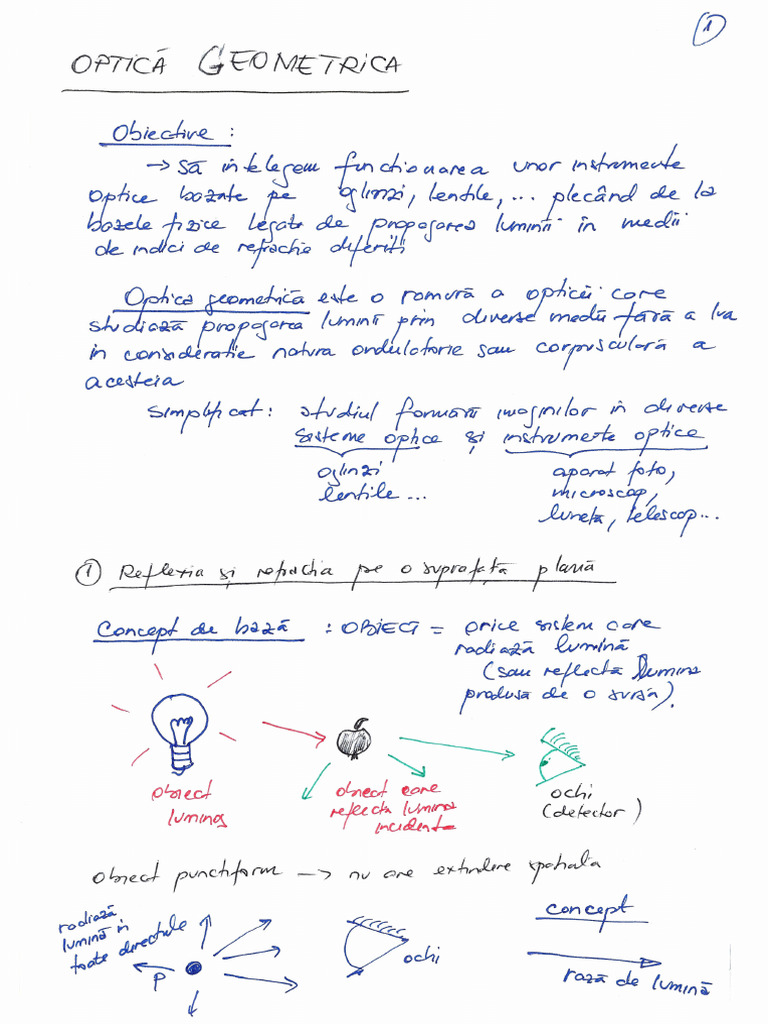 1
OPTICĂ GEOMETRICA
Obiective :
→ Să intelegem functionarea unor instrumente
optice bazate pe oglinzi, lentile, ... plecând de la
bazele fizice legate de propagarea luminii in medii
de indici de refractie diferiti
Optica geometrică este o ramură a opticii care
studiază propagarea luminii prin diverse medii fără a lua
in consideratie natura ondulatorie sau corpusculară a
acesteia
Simplificat : studiul formării imaginilor in diverse
sisteme optice și instrumente optice
oglinzi
lentile ...
aparat foto,
microscop,
luneta, telescop...
1 Reflexia și refractia pe o suprafată plană
Concept de bază : OBIECT = orice sistem care
radiază lumină
(sau reflectă lumina
produsa de o sursă).
obiect
luminos
obiect care
reflecta lumina
incidenta
ochi
(detector)
obiect punctiform → nu are extindere spatiala
radiază
lumină in
toate directiile
P
ochi
concept
rază de lumină